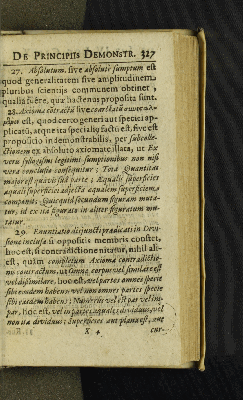 DE PRINCIPIIS DEMONSTR. 327
27. Absolutum, sive absolutè sumptum est
quod generalitatem sive amplitudinem,
pluribus scientijs communem obtinet,
qualia fuêre, quæ hactenus proposita sunt.
28. Axioma
est, quod certo generi aut speciei ap-
plicatū, atque ita specialiġ factū est, sive est
propositio indemonstrabilis, per
ctionem ex absoluto axiomate illata, ut Ex
veris syllogismi legitimi sumptionibus non nisi
vera conclusio consequitur; Tota Quantitas
major est quàvis suâ parte; Æqualis superficies
æquali superficiei adjecta æqualem superficiem
componit; Quicquid secundum figuram muta-
tur, id ex ista figurato in aliter figuratum mu-
tatur.
29. Enuntiatio disjuncti prædicati in Divi-
sione inclusa si oppositis membris constet,
hoc est, si contradictione nitatur, nihil ali-
est, quàm complicitum Axioma contradictio-
nis contractum, ut Omne corpus vel similare est
vel dissimilare, hoc est, vel partes omnes specie
sibi easdem habens, vel non omnes partes specie
sibi easdem habens; Numerus vel est par vel im-
par, hoc est, vel in partes æquales dividuus, vel
non ita dividuus; Superficies aut plana est, aut
X 4 cur-